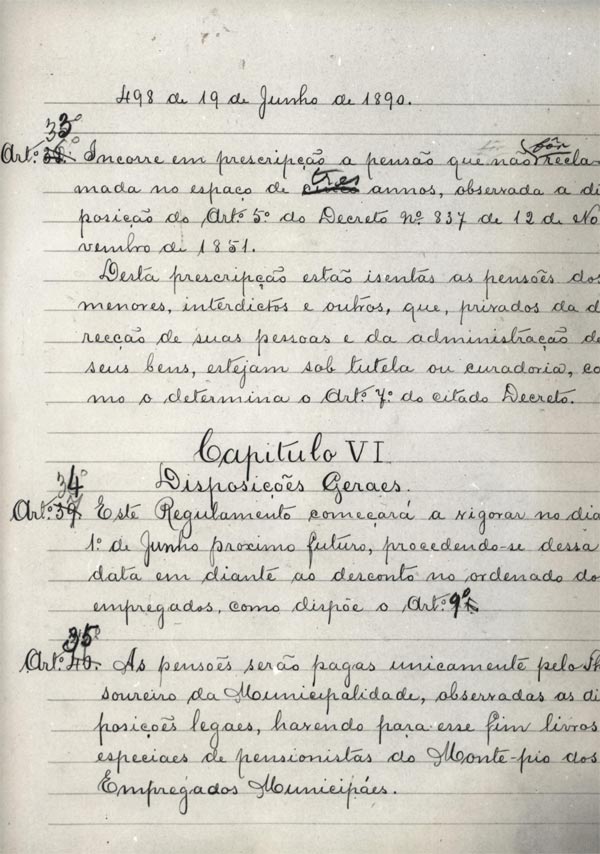 498 de 19 de Junho de 1890.
33º
Artº. 38º. Incorre em prescripção a pensão que não fôr recla-
mada no espaço de tres annos, observada a di
posição do Artº 5º do Decreto nº 837 de 12 de No
vembro de 1851.
Desta prescripção estão isentas as pensões dos
menores, interdictos e outros, que, privados da d
recção de suas pessoas e da administração de
seus bens, estejam sob tutela ou curadoria, co
mo o determina o Artº 7º do citado Decreto.
Capitulo VI
Disposições Geraes.
34º
Artº. 39. Este Regulamento começará a vigorar no dia
1º de Junho proximo futuro, procedendo-se dessa
data em diante ao desconto no ordenado do
empregados, como dispõe o Artº 9º
35º
Artº. 40. As pensões serão pagas unicamente pelo Th
soureiro da Municipalidade, observadas as di
posições legaes, havendo para esse fim livros
especiaes de pensionistas do Monte-pio dos
Empregados Municipáes.